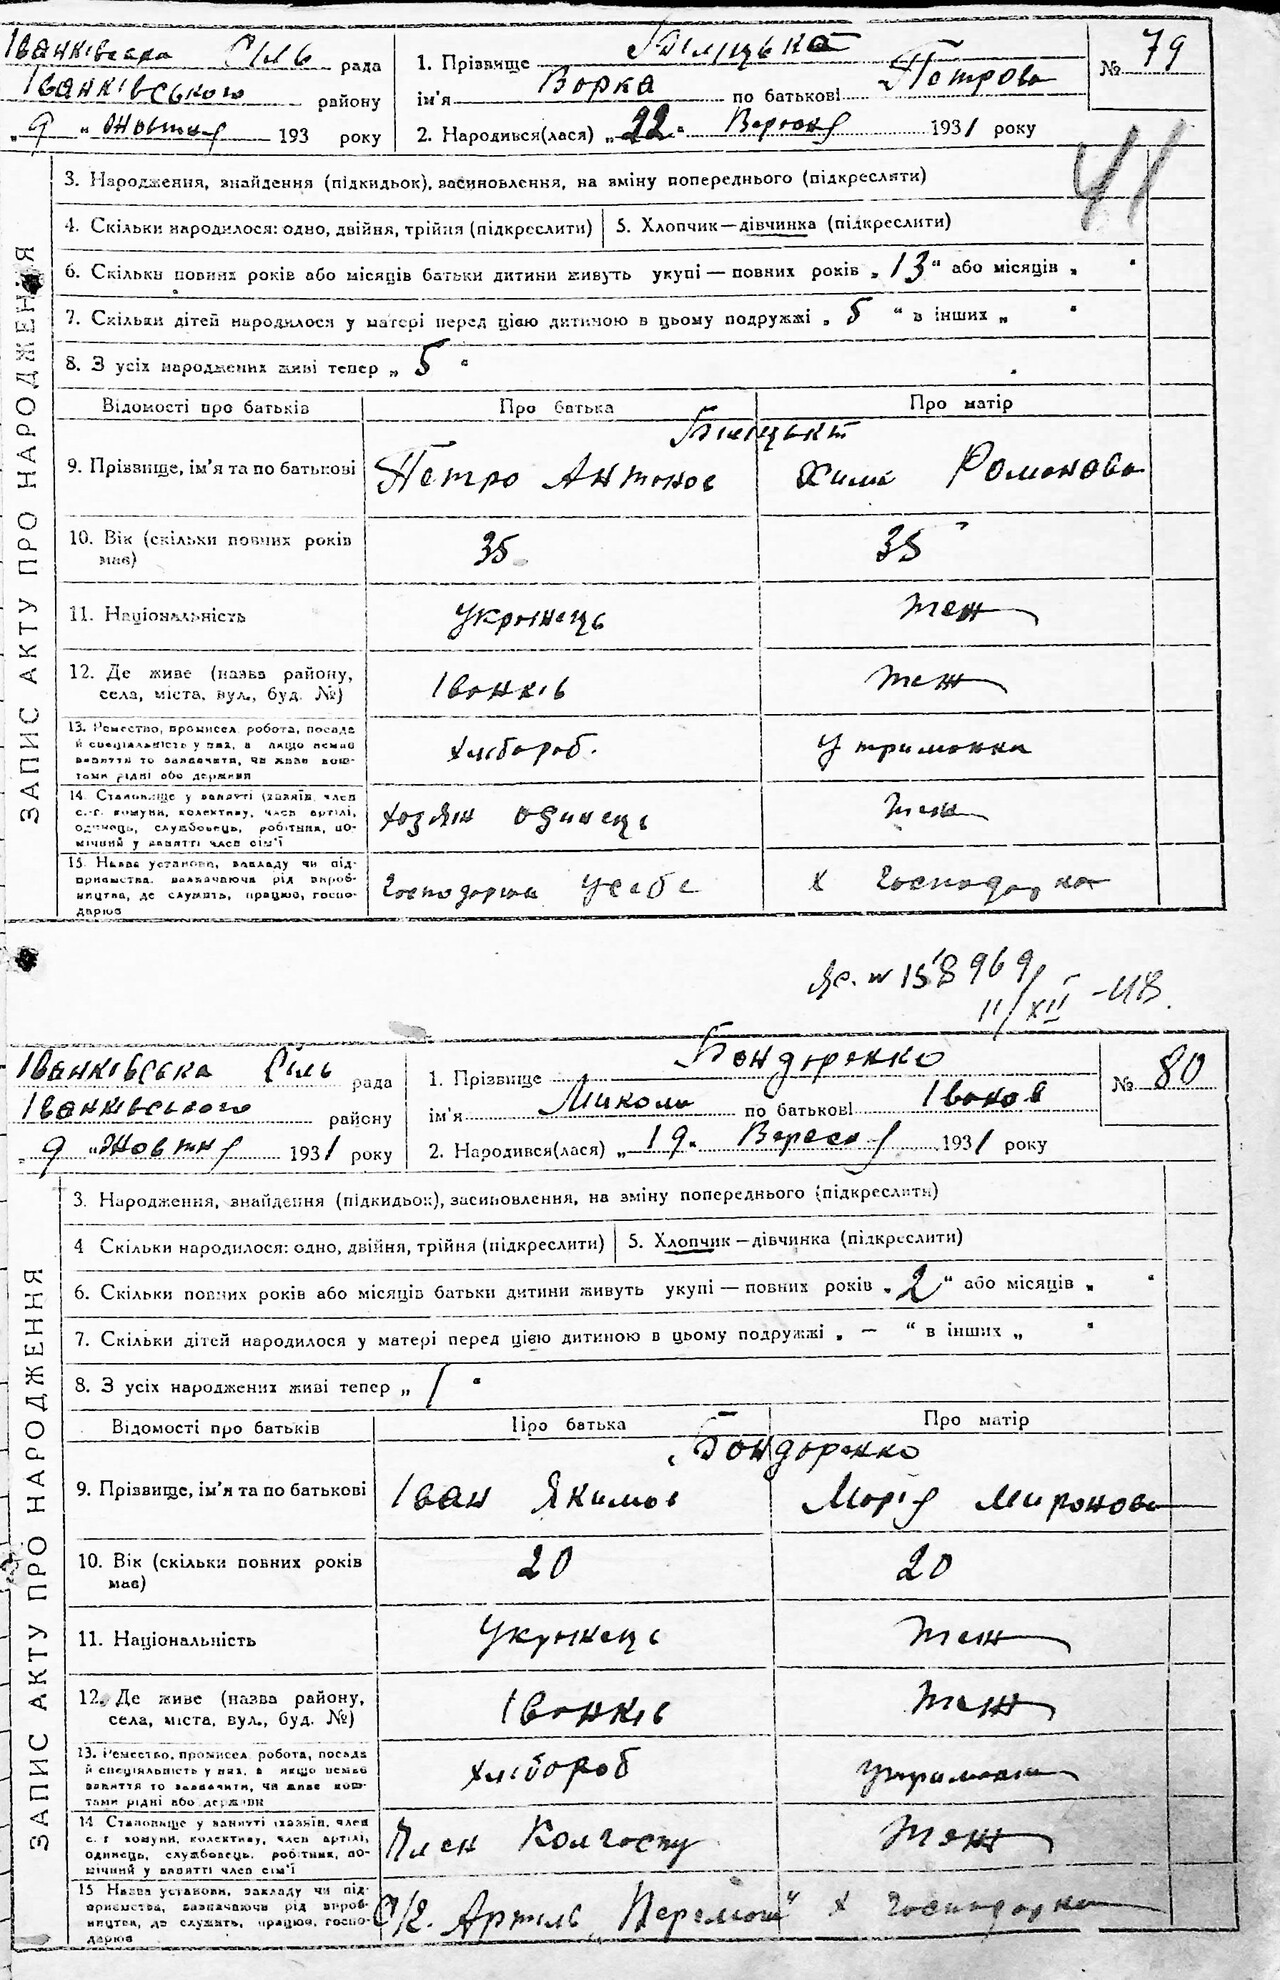 Іванківська Сіль рада
Іванківського району
„ 9 " Жовтня 193 року
1. Прізвище Біліцька
ім'я Ворка по батькові Петрова
2. Народився(лася) „ 22 " Вересня 1931 року
№ 79
41
ЗАПИС АКТУ ПРО НАРОДЖЕННЯ
3. Народження, знайдення (підкидьок), засиновлення, на зміну попереднього (підкреслити)
4. Скільки народилося: одно, двійня, трійня (підкреслити) 5. Хлопчик—дівчинка (підкреслити)
6. Скільки повних років або місяців батьки дитини живуть укупі — повних років „ 13 " або місяців „ "
7. Скільки дітей народилося у матері перед цією дитиною в цьому подружжі „ 5 " в інших „ "
8. З усіх народжених живі тепер „ 5 "
Відомості про батьків Про батька Про матір
Біліцькі
9. Прізвище, ім'я та по батькові Петро Антонов Хима Романова
10. Вік (скільки повних років 35 35
має)
11. Національність Украінець теж
12. Де живе (назва району, Іванків теж
села, міста, вул., буд. №)
13. Ремество, промисел, робота, посада
й спеціальність у них, а якщо немає Хлібороб. Утриманка
заняття то зазначити, чи живе кош-
тами рідні або держави
14. Становище у занятті (хазяїн, член
с.-г. комуни, колективу, член артілі, Хозяін одинець теж
одинець, службовець, робітник, по-
мічний у занятті член сім'ї
15. Назва установи, закладу чи під-
приємства, зазначаючи рід вироб- Господарює у себе х господарка
ництва, де служить, працює, госпо-
дарює
№ 158969
11/XII -48.
Іванківська Сіль рада
Іванківського району
„ 9 " Жовтня 1931 року
1. Прізвище Бондаренко
ім'я Микола по батькові Іванов
2. Народився(лася) „ 19 " Вересня 1931 року
№ 80
ЗАПИС АКТУ ПРО НАРОДЖЕННЯ
3. Народження, знайдення (підкидьок), засиновлення, на зміну попереднього (підкреслити)
4 Скільки народилося: одно, двійня, трійня (підкреслити) 5. Хлопчик—дівчинка (підкреслити)
6. Скільки повних років або місяців батьки дитини живуть укупі — повних років „ 2 " або місяців „ "
7. Скільки дітей народилося у матері перед цією дитиною в цьому подружжі „ — " в інших „ "
8. З усіх народжених живі тепер „ 1 "
Відомості про батьків Про батька Про матір
Бондаренко
9. Прізвище, ім'я та по батькові Іван Якимов Марія Миронова
10. Вік (скільки повних років 20 20
має)
11. Національність Украінець теж
12. Де живе (назва району, Іванків теж
села, міста, вул., буд. №)
13. Ремество, промисел, робота, посада
й спеціальність у них, а якщо немає Хлібороб утриманка
заняття то зазначити, чи живе кош-
тами рідні або держави
14 Становище у занятті (хазяїн, член
с. г. комуни, колективу, член артілі, Член Колгоспу теж
одинець, службовець, робітник, по-
мічний у занятті член сім'ї
15 Назва установи, закладу чи під-
приємства, зазначаючи рід вироб- С/г. Артиль „Перемога" х господарка
ництва, де служить, працює, госпо-
дарює